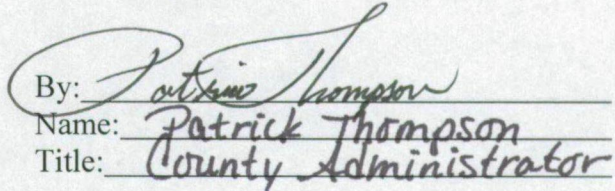 By: Patrick Thompson
Name: Patrick Thompson
Title: County Administrator